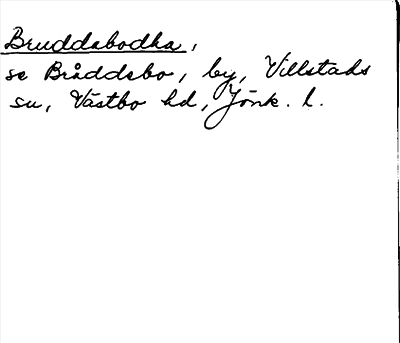 Bruddabodha,
se Bråddabo, by, Villstads
sn, Västbo hd, Jönk. l.